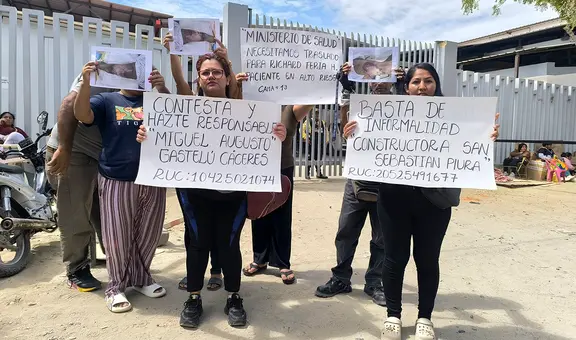 "MINISTERIO DE SALUD"
NECESITAMOS TRASLADO
PARA RICHARD FERIA H
PACIENTE EN ALTO RIESGO
CONTESTA Y
HAZTE RESPONSABLE
"MIGUEL AUGUSTO
GASTELÚ CÁCERES
RUC: 10425021074
BASTA DE
INFORMALIDAD
CONSTRUCTORA SAN
SEBASTIAN PIURA"
RUC: 20525491677